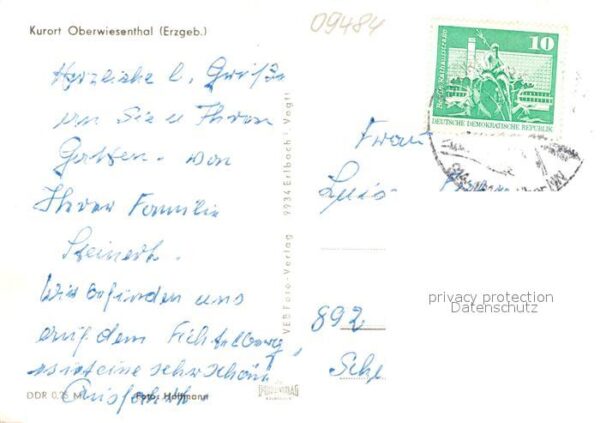 Kurort Oberwiesenthal (Erzgeb.)
09484
10
Berlin, Rathausstraße
DEUTSCHE DEMOKRATISCHE REPUBLIK
Herzliche l. Grüße
an Sie u Ihren
Gatten. von
Ihrer Familie
Steinert.
Wir befinden uns
auf dem Fichtelberg
es ist eine sehr schöne
Ausfahrt
DDR 0,75 M
Foto: Hoffmann
VEB Foto-Verlag 9934 Erlbach Vogtl
Frau
892
privacy protection
Datenschutz